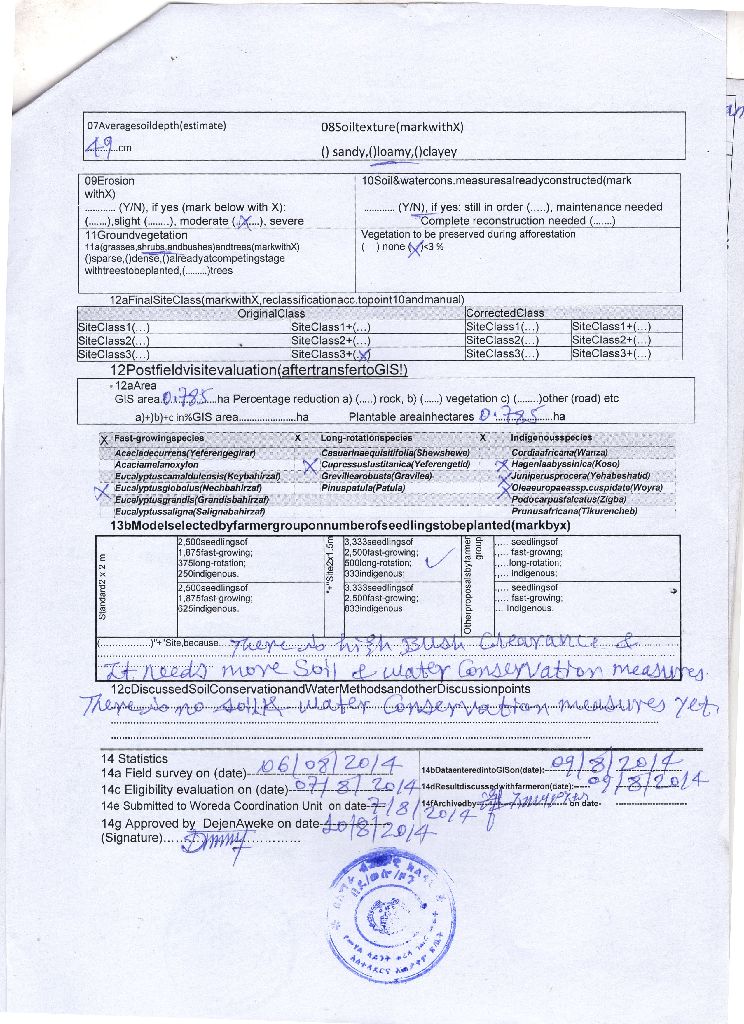 07Averagesoildepth(estimate)
49 cm
08Soiltexture(markwithX)
() sandy,()loamy,()clayey
09Erosion
withX)
........... (Y/N), if yes (mark below with X):
(.......),slight (.......), moderate (..X....), severe
10Soil&watercons.measuresalreadyconstructed(mark
........... (Y/N), if yes: still in order (.....), maintenance needed
Complete reconstruction needed (.......)
11Groundvegetation
11a(grasses,shrubs,andbushes)endtrees(markwithX)
()sparse,()dense,()alreadyatcompetingstage
withtreestobeplanted,(.........)trees
Vegetation to be preserved during afforestation
( ) none (X)<3 %
12aFinalSiteClass(markwithX,reclassificationacc.topoint10andmanual)
OriginalClass CorrectedClass
SiteClass1(...) SiteClass1+(...) SiteClass1(...) SiteClass1+(...)
SiteClass2(...) SiteClass2+(...) SiteClass2(...) SiteClass2+(...)
SiteClass3(...) SiteClass3+(X) SiteClass3(...) SiteClass3+(...)
12Postfieldvisitevaluation(aftertransfertoGIS!)
12aArea
GIS area 0.785 ha Percentage reduction a) (.....) rock, b) (......) vegetation c) (........)other (road) etc
a)+)b)+c in%GIS area...................ha Plantable areainhectares 0.785 ha
X Fast-growingspecies X Long-rotationspecies X Indigenousspecies
Acaciadecurrens(Yeferengegirar) Casuarinaequisitifolia(Shewshewe) Cordiaafricana(Wanza)
Acaciamelanoxylon X Cupressuslustitanica(Yeferengetid) X Hageniaabyssinica(Koso)
Eucalyptuscamaldulensis(Keybahirzaf) Grevillearobusta(Gravilea) X Juniperusprocera(Yehabeshatid)
X Eucalyptusglobulus(Nechbahirzaf) Pinuspatula(Patula) X Oleaeuropaeassp.cuspidato(Woyra)
Eucalyptusgrandis(Grandisbahirzaf) Podocarpusfalcatus(Zigba)
Eucalyptussaligna(Salignabahirzaf) Prunusafricana(Tikurencheb)
13bModelselectedbyfarmergrouponnumberofseedlingstobeplanted(markbyx)
Standard2 x 2 m
2,500seedlingsof
1,875fast-growing;
375long-rotation;
250indigenous.
2,500seedlingsof
1,875fast-growing;
625indigenous.
"+"Site2x1.5m
3,333seedlingsof
2,500fast-growing;
500long-rotation;
333indigenous;
3.333seedlingsof
2.500fast-growing;
833indigenous
Otherproposalsbyfarmer group
..... seedlingsof
.... fast-growing;
....long-rotation;
.... indigenous;
..... seedlingsof
.... fast-growing;
... indigenous.
(...............)"+"Site,because There is high Bush Clearance &
It needs more Soil & water Conservation measures.
12cDiscussedSoilConservationandWaterMethodsandotherDiscussionpoints
There is no soil & water Conservation measures yet,
14 Statistics
14a Field survey on (date) 06/08/2014
14bDataenteredintoGISon(date): 09/8/2014
14c Eligibility evaluation on (date) 07/8/2014
14dResultdiscussedwithfarmeron(date): 09/8/2014
14e Submitted to Woreda Coordination Unit on date 7/8/2014
14fArchivedby on date
14g Approved by DejenAweke on date 10/8/2014
(Signature)